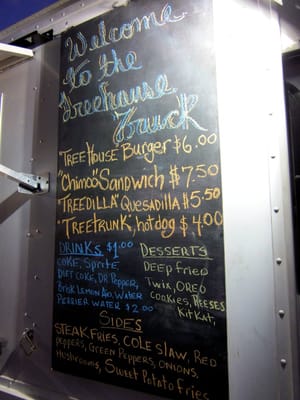 Welcome
to the
Treehouse
Truck
"TREEHOUSE BURGER $6.00
"Chimoo" Sandwich $7.50
"TREEDILLA" QUESADILLA $5.50
"TREETRUNK", hotdog $4.00
DRINKS $1.00
COKE, Sprite
DIET COKE, DR Pepper,
Brisk Lemon Aid, WATER
PERRIER WATER $2.00
DESSERTS
DEEP fried
Twix, OREO
Cookies, REESES
KitKat,
SIDES
STEAK FRIES, COLE SLAW, RED
peppers, GREEN Peppers, ONIONS,
Mushrooms, Sweet Potato fries